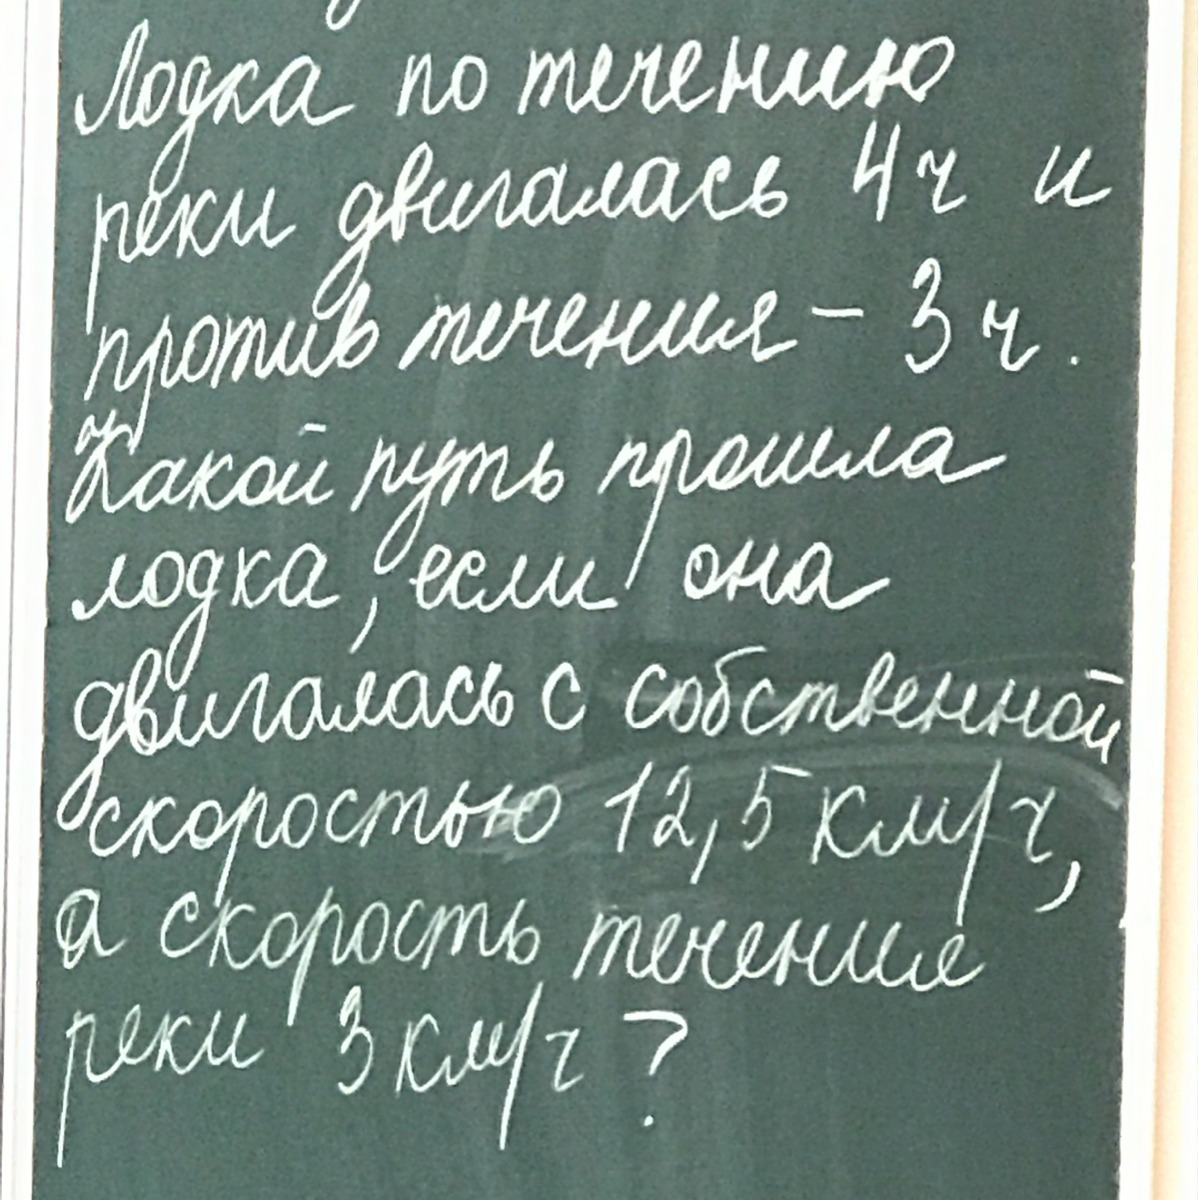 Лодка по течению
реки двигалась 4ч и
против течения - 3 ч.
Какой путь прошла
лодка, если она
двигалась с собственной
скоростью 12,5 км/ч,
а скорость течения
реки 3 км/ч ?